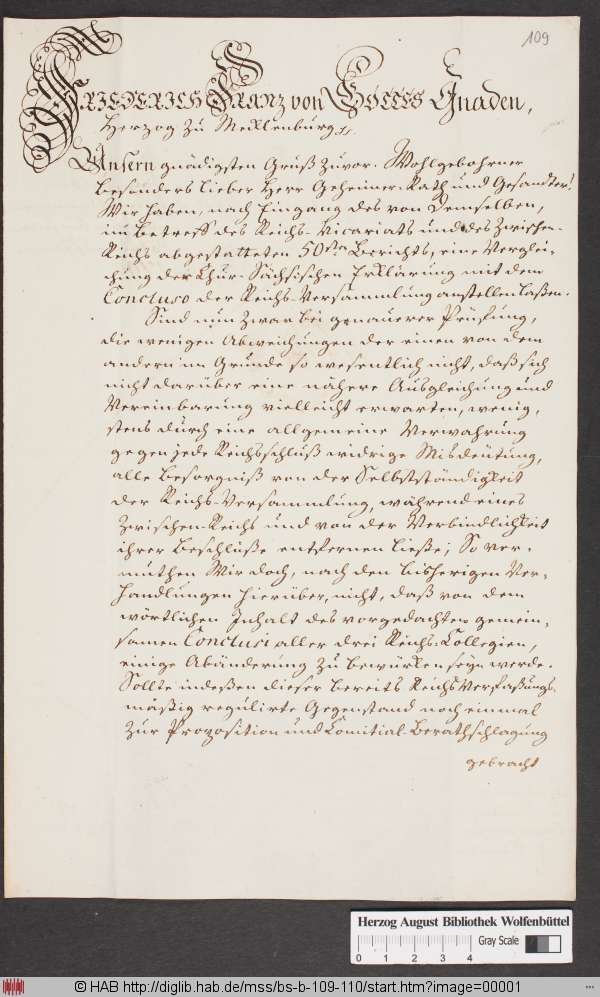 109
FRIEDERICH Franz von GOTTES Gnaden,
Herzog zu Mecklenburg
Unsern gnädigsten Gruß zuvor. Wohlgebohrner
besonders lieber Herr Geheimer-Rath und Gesandter!
Wir haben, nach Eingang des von Demselben,
in Betreff des Reichs-Vicariats und des Zwischen-
Reichs abgestatteten 50sten Berichts, eine Verglei-
chung der Chur-Sächsischen Erklärung mit dem
Concluso der Reichs-Versammlung anstellen laßen.
Sind nun zwar bei genauerer Prüfung,
die wenigen Abweichungen der einen von dem
andern im Grunde so wesentlich nicht, daß sich
nicht darüber eine nähere Ausgleichung und
Vereinbarung vielleicht erwarten, wenig,
stens durch eine allgemeine Verwahrung
gegen jede Reichsschluß widrige Misdeutung,
alle Besorgniß von der Selbstständigkeit
der Reichs-Versammlung, während eines
Zwischen-Reichs und von der Verbindlichkeit
ihrer Beschlüße entfernen ließe; So ver-
muthen Wir doch, nach den bisherigen Ver-
handlungen hierüber, nicht, daß von dem
wörtlichen Inhalt des vorgedachten gemein-
samen Conclusi aller drei Reichs-Collegien,
einige Abänderung zu bewürken seyn werde.
Sollte indeßen dieser bereits Reichs Verfaßungs-
mäßig regulirte Gegenstand noch einmal
zur Proposition und Comitial-Berathschlagung
gebracht
Herzog August Bibliothek Wolfenbüttel
0 1 2 3 4 Gray Scale
© HAB http://diglib.hab.de/mss/bs-b-109-110/start.htm?image=00001